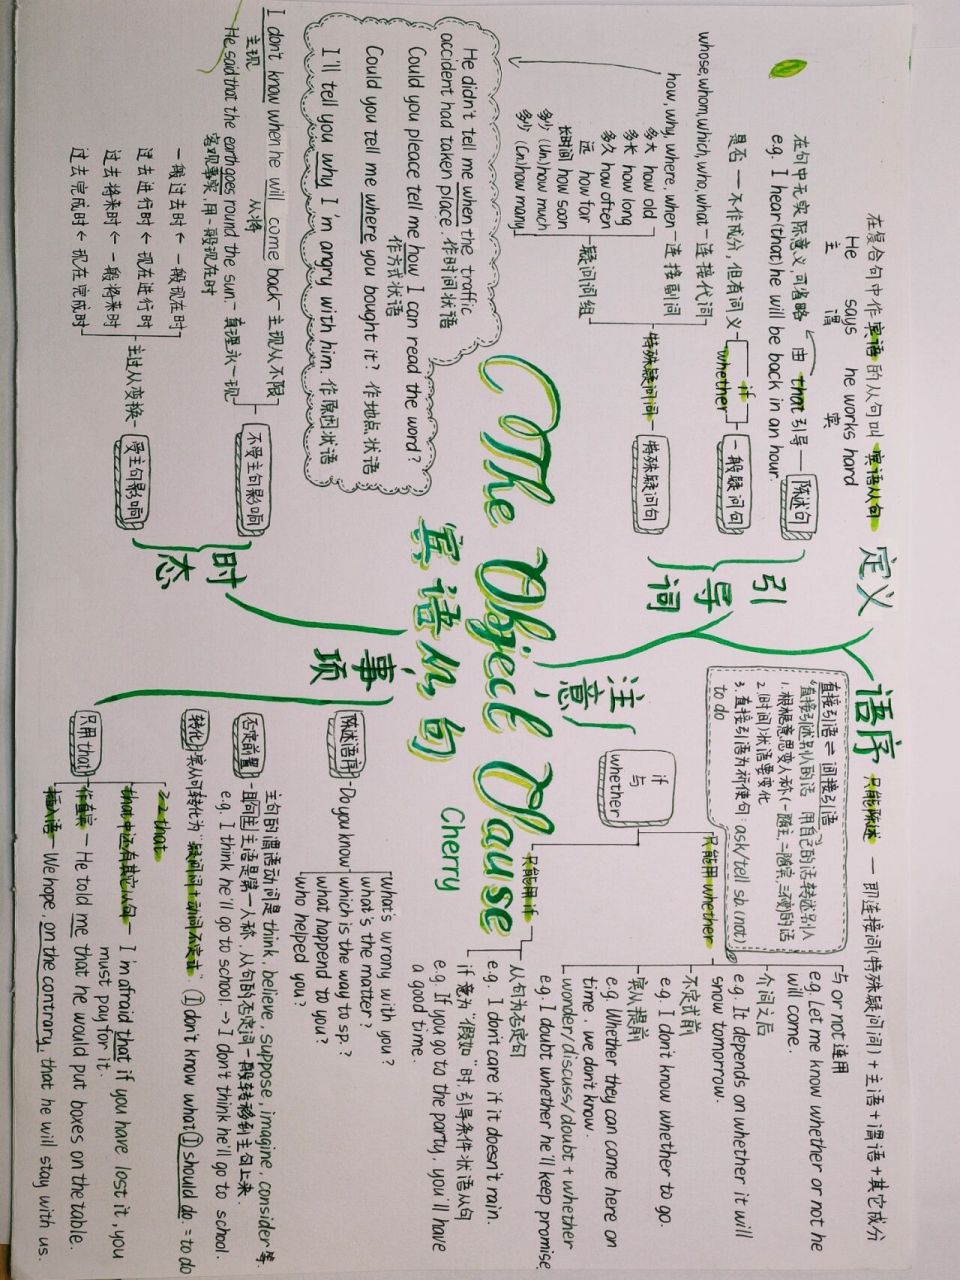 The Object Clause
宾语从句
Cherry
定义
在复合句中作宾语的从句叫 宾语从句
He says he works hard
主 谓 宾
引导词
陈述句
由 that 引导
在句中无实际意义,可省略
e.g. I hear (that) he will be back in an hour.
一般疑问句
if
whether
是否 — 不作成分, 但有词义
特殊疑问句
特殊疑问词
whose, whom, which, who, what — 连接代词
how, why, where, when — 连接副词
疑问词组
多大 how old
多长 how long
多久 how often
远 how far
长时间 how soon
多少 (Un.) how much
多少 (Cn.) how many
He didn't tell me when the traffic
accident had taken place. 作时间状语
Could you pleace tell me how I can read the word?
作方式状语
Could you tell me where you bought it? 作地点状语
I'll tell you why I'm angry with him. 作原因状语
时态
不受主句影响
I don't know when he will come back — 主现从不限
主现 从将
He said that the earth goes round the sun. — 真理永一现
客观事实, 用一般现在时
受主句影响
主过从变换
一般过去时 ← 一般现在时
过去进行时 ← 现在进行时
过去将来时 ← 一般将来时
过去完成时 ← 现在完成时
语序
只能陈述 — 即连接词(特殊疑问词)+主语+谓语+其它成分
直接引语 ⇌ 间接引语
"直接引述别人的话 用自己的话转述别人
1. 根据意思变人称 (一随主 二随宾, 三
2. (时间)状语要变化
3. 直接引语为祈使句: ask/tell sb (not)
to do
注意事项
if 与 whether
只能用 whether
与 or not 连用
e.g. Let me know whether or not he
will come.
介词之后
e.g. It depends on whether it will
snow tomorrow.
不定式前
e.g. I don't know whether to go.
宾从提前
e.g. Whether they can come here on
time, we don't know.
wonder/discuss/doubt + whether
e.g. I doubt whether he'll keep promise
只能用 if
从句为否定句
e.g. I don't care if it doesn't rain.
if 意为"假如"时, 引导条件状语从句
e.g. If you go to the party, you'll have
a good time.
陈述语序
Do you know
what's wrong with you?
what's the matter?
which is the way to sp.?
what happend to you?
who helped you?
否定前置
主句的谓语动词是 think, believe, suppose, imagine, consider 等.
且句主主语是第一人称, 从句的否定词一般转移到主句上来.
e.g. I think he'll go to school. → I don't think he'll go to school.
转化
宾从可转化为"疑问词+动词不定式". ① I don't know what ① should do. = to do
只用 that
≥2 that
that 中还有其它从句 — I'm afraid that if you have lost it, you
must pay for it.
作直宾 — He told me that he would put boxes on the table.
插入语 — We hope, on the contrary, that he will stay with us.